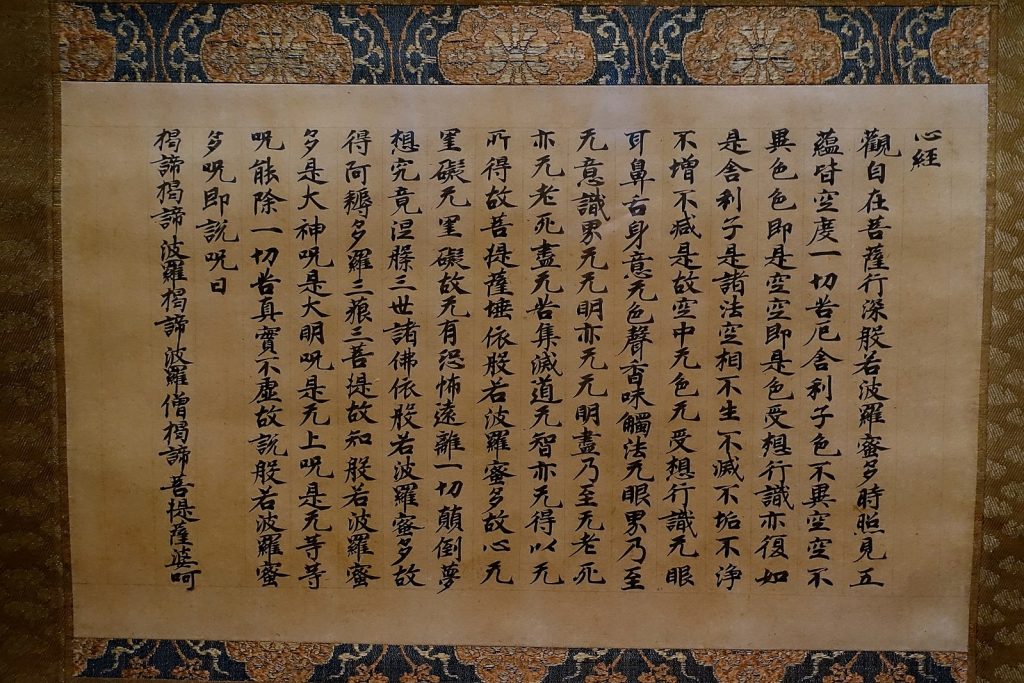 心経
觀自在菩薩行深般若波羅蜜多時照見五
蘊皆空度一切苦厄舍利子色不異空空不
異色色即是空空即是色受想行識亦復如
是舍利子是諸法空相不生不滅不垢不浄
不增不減是故空中无色无受想行識无眼
耳鼻舌身意无色聲香味觸法无眼界乃至
无意識界无无明亦无无明盡乃至无老死
亦无老死盡无苦集滅道无智亦无得以无
所得故菩提薩埵依般若波羅蜜多故心无
罣礙无罣礙故无有恐怖遠離一切顛倒夢
想究竟涅槃三世諸佛依般若波羅蜜多故
得阿耨多羅三藐三菩提故知般若波羅蜜
多是大神呪是大明呪是无上呪是无等等
呪能除一切苦真實不虛故說般若波羅蜜
多呪即說呪曰
揭諦揭諦波羅揭諦波羅僧揭諦菩提薩婆呵